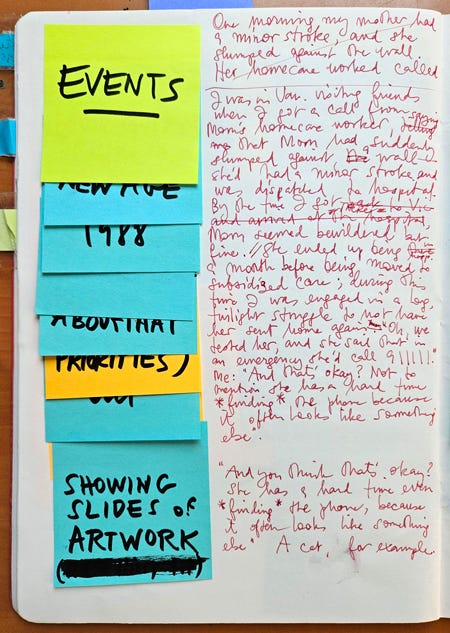 EVENTS
NEW AGE
1988
ABOUT THAT
PRIORITIES)
SHOWING
SLIDES of
ARTWORK
One morning, my mother had
a minor stroke, and she
slumped against the wall.
Her homecare worked called
I was in Van. visiting friends
when I got a call from
Mom's homecare worker, saying
me that Mom had suddenly
slumped against the wall –
she'd had a minor stroke, and
was dispatched to hospital.
By the time I got back to Vic
and arrived at the hospital,
Mom seemed bewildered, but
fine. // She ended up being in
a month before being moved to
subsidized care; during this
time I was engaged in a long,
twilight struggle to not have
her sent home again. "Oh, we
tested her, and she said that in
an emergency she'd call 911!!!!"
Me: "And that's okay? Not to
mention she has a hard time
*finding* the phone because
it often looks like something
else."
"And you think that's okay?
She has a hard time even
*finding* the phone, because
it often looks like something
else." A cat, for example.